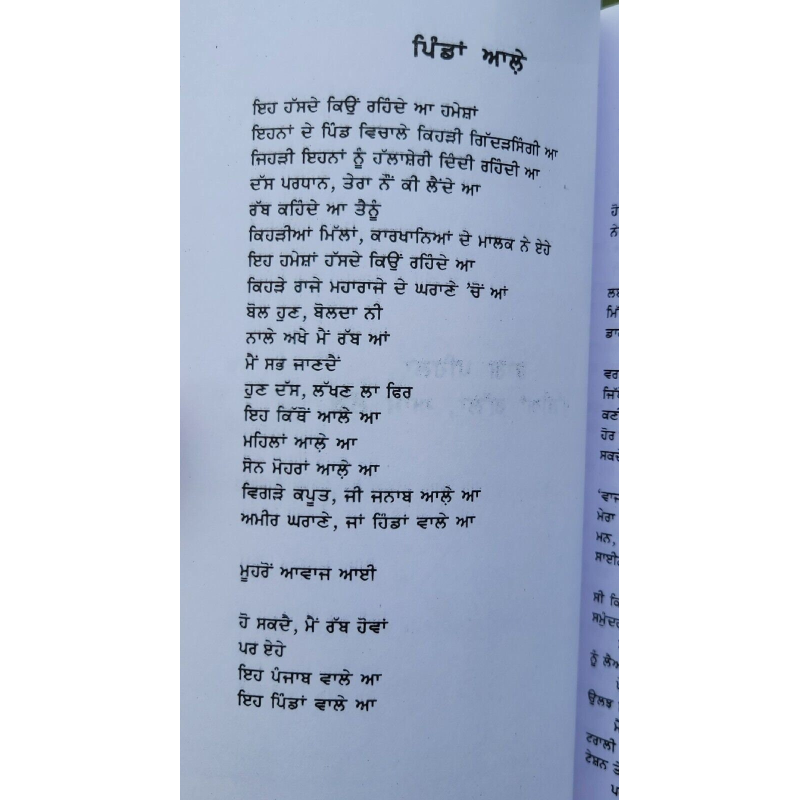 ਪਿੰਡਾਂ ਆਲ਼ੇ
ਇਹ ਹੱਸਦੇ ਕਿਉਂ ਰਹਿੰਦੇ ਆ ਹਮੇਸ਼ਾਂ
ਇਹਨਾਂ ਦੇ ਪਿੰਡ ਵਿਚਾਲੇ ਕਿਹੜੀ ਗਿੱਦੜਸਿੰਗੀ ਆ
ਜਿਹੜੀ ਇਹਨਾਂ ਨੂੰ ਹੱਲਾਸ਼ੇਰੀ ਦਿੰਦੀ ਰਹਿੰਦੀ ਆ
ਦੱਸ ਪਰਧਾਨ, ਤੇਰਾ ਨੌਂ ਕੀ ਲੈਂਦੇ ਆ
ਰੱਬ ਕਹਿੰਦੇ ਆ ਤੈਨੂੰ
ਕਿਹੜੀਆਂ ਮਿੱਲਾਂ, ਕਾਰਖਾਨਿਆਂ ਦੇ ਮਾਲਕ ਨੇ ਏਹੇ
ਇਹ ਹਮੇਸ਼ਾਂ ਹੱਸਦੇ ਕਿਉਂ ਰਹਿੰਦੇ ਆ
ਕਿਹੜੇ ਰਾਜੇ ਮਹਾਰਾਜੇ ਦੇ ਘਰਾਣੇ ’ਚੋਂ ਆਂ
ਬੋਲ ਹੁਣ, ਬੋਲਦਾ ਨੀ
ਨਾਲੇ ਅਖੇ ਮੈਂ ਰੱਬ ਆਂ
ਮੈਂ ਸਭ ਜਾਣਦੈਂ
ਹੁਣ ਦੱਸ, ਲੱਖਣ ਲਾ ਫਿਰ
ਇਹ ਕਿੱਥੋਂ ਆਲੇ ਆ
ਮਹਿਲਾਂ ਆਲ਼ੇ ਆ
ਸੋਨ ਮੋਹਰਾਂ ਆਲ਼ੇ ਆ
ਵਿਗੜੇ ਕਪੂਤ, ਜੀ ਜਨਾਬ ਆਲ਼ੇ ਆ
ਅਮੀਰ ਘਰਾਣੇ, ਜਾਂ ਹਿੰਡਾਂ ਵਾਲੇ ਆ
ਮੂਹਰੋਂ ਆਵਾਜ ਆਈ
ਹੋ ਸਕਦੈ, ਮੈਂ ਰੱਬ ਹੋਵਾਂ
ਪਰ ਏਹੇ
ਇਹ ਪੰਜਾਬ ਵਾਲੇ ਆ
ਇਹ ਪਿੰਡਾਂ ਵਾਲੇ ਆ